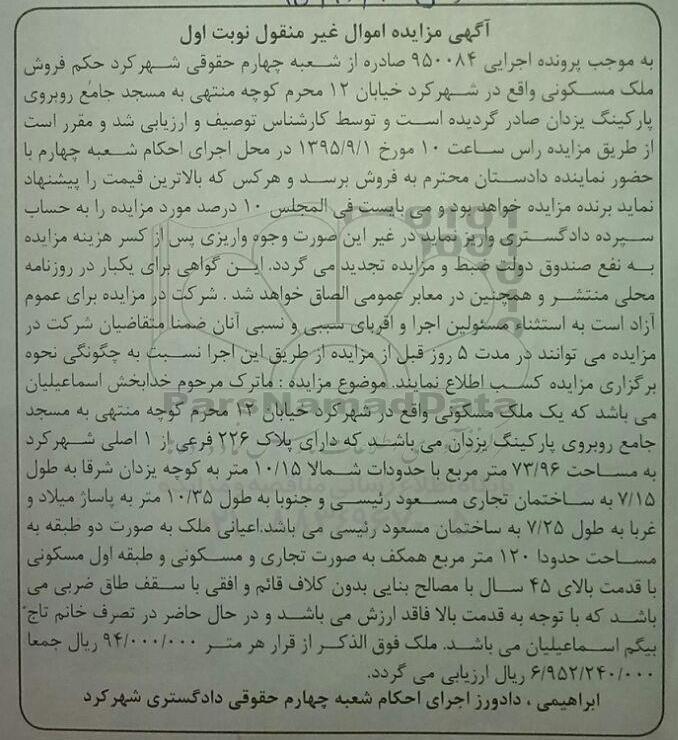 آگهی مزایده اموال غیر منقول نوبت اول
به موجب پرونده اجرایی ۹۵۰۰۸۴ صادره از شعبه چهارم حقوقی شهرکرد حکم فروش
ملک مسکونی واقع در شهرکرد خیابان ۱۲ محرم کوچه منتهی به مسجد جامع روبروی
پارکینگ یزدان صادر گردیده است و توسط کارشناس توصیف و ارزیابی شد و مقرر است
از طریق مزایده راس ساعت ۱۰ مورخ ۱۳۹۵/۹/۱ در محل اجرای احکام شعبه چهارم با
حضور نماینده دادستان محترم به فروش برسد و هرکس که بالاترین قیمت را پیشنهاد
نماید برنده مزایده خواهد بود و می بایست فی المجلس ۱۰ درصد مورد مزایده را به حساب
سپرده دادگستری واریز نماید در غیر این صورت وجوه واریزی پس از کسر هزینه مزایده
به نفع صندوق دولت ضبط و مزایده تجدید می گردد. این گواهی برای یکبار در روزنامه
محلی منتشر و همچنین در معابر عمومی الصاق خواهد شد . شرکت در مزایده برای عموم
آزاد است به استثناء مسئولین اجرا و اقربای سببی و نسبی آنان ضمنا متقاضیان شرکت در
مزایده می توانند در مدت ۵ روز قبل از مزایده از طریق این اجرا نسبت به چگونگی نحوه
برگزاری مزایده کسب اطلاع نمایند. موضوع مزایده : ماترک مرحوم خدابخش اسماعیلیان
ParsNamadData
می باشد که یک ملک مسکونی واقع در شهرکرد خیابان ۱۲ محرم کوچه منتهی به مسجد
جامع روبروی پارکینگ یزدان می باشد که دارای پلاک ۲۲۶ فرعی از ۱ اصلی شهرکرد
به مساحت ۷۳/۹۶ متر مربع با حدودات شمالا ۱۰/۱۵ متر به کوچه یزدان شرقا به طول
۷/۱۵ به ساختمان تجاری مسعود رئیسی و جنوبا به طول ۱۰/۳۵ متر به پاساژ میلاد و
غربا به طول ۷/۲۵ به ساختمان مسعود رئیسی می باشد.اعیانی ملک به صورت دو طبقه به
مساحت حدودا ۱۲۰ متر مربع همکف به صورت تجاری و مسکونی و طبقه اول مسکونی
با قدمت بالای ۴۵ سال با مصالح بنایی بدون کلاف قائم و افقی با سقف طاق ضربی می
باشد که با توجه به قدمت بالا فاقد ارزش می باشد و در حال حاضر در تصرف خانم تاج
بیگم اسماعیلیان می باشد. ملک فوق الذکر از قرار هر متر ۹۴/۰۰۰/۰۰۰ ریال جمعا
۶/۹۵۲/۲۴۰/۰۰۰ ریال ارزیابی می گردد.
ابراهیمی ، دادورز اجرای احکام شعبه چهارم حقوقی دادگستری شهرکرد